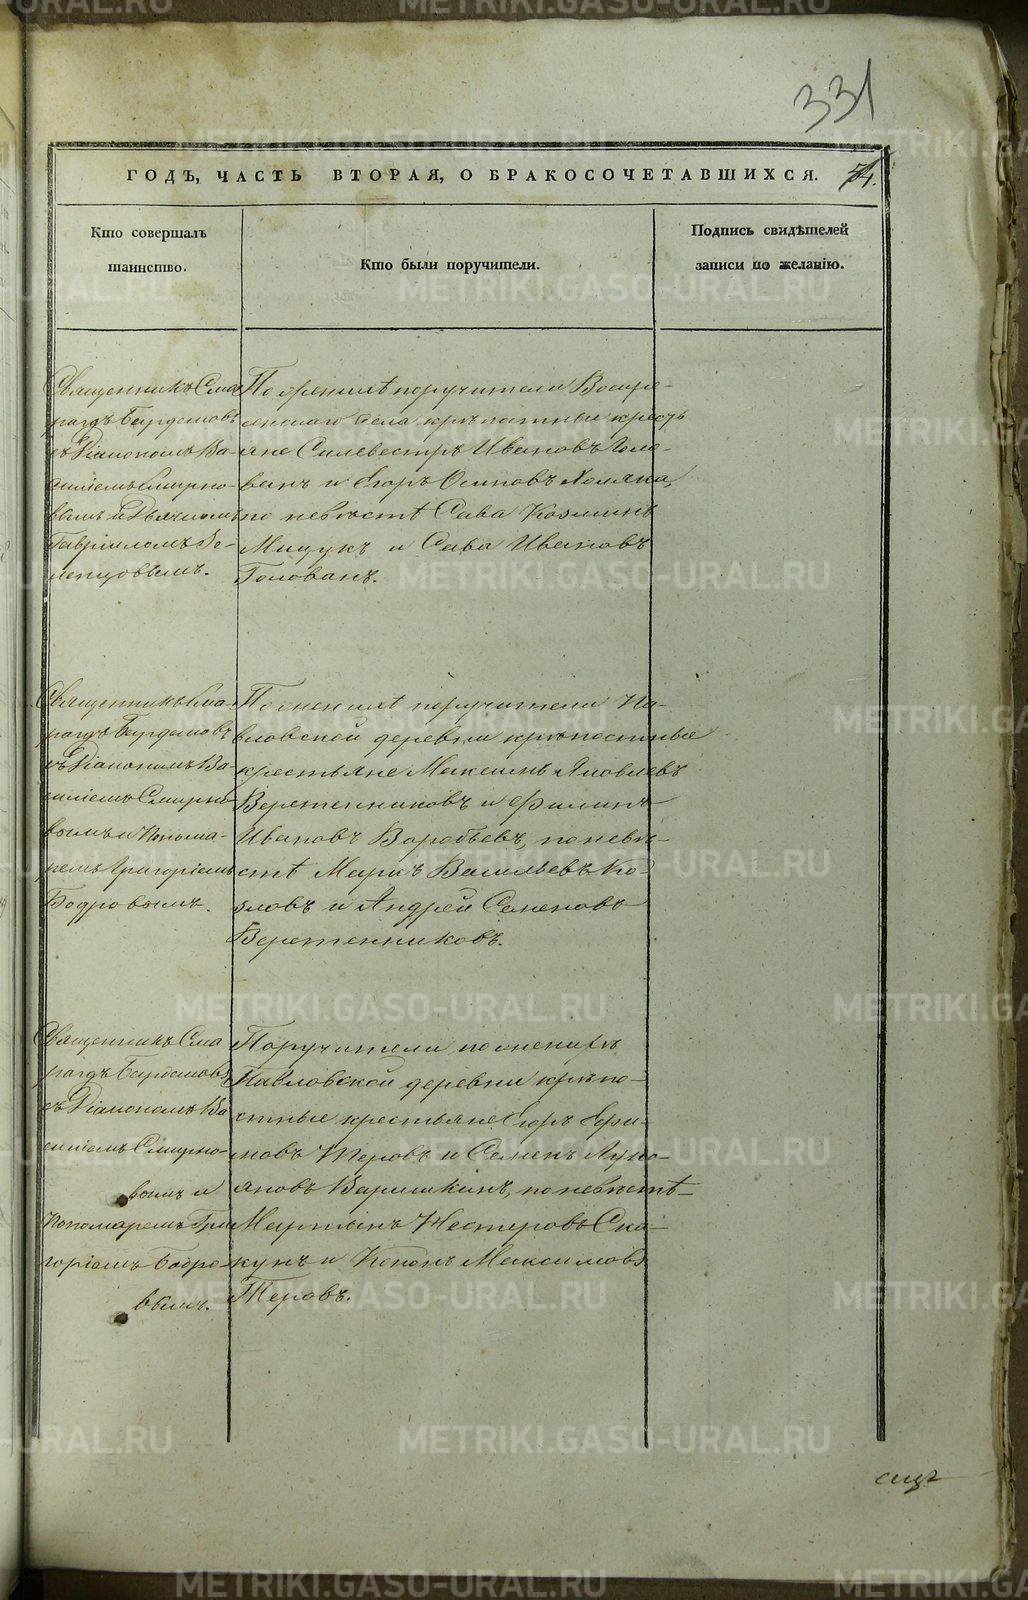 331
ГОДЪ, ЧАСТЬ ВТОРАЯ, О БРАКОСОЧЕТАВШИХСЯ.
Кто совершалъ
таинство.
Кто были поручители.
Подпись свидѣтелей
записи по желанію.
Священникъ Сма-
рагдъ Бурдашовъ
съ Діакономъ Ва-
силіемъ Смирно-
вымъ и Дьячкомъ
Гавріиломъ
По женихѣ поручители Воскре-
сенскаго села крѣпостные кресть
яне Силевестръ Ивановъ Голо-
ванъ и Егоръ Осиповъ Хомяка,
по невѣстѣ Сава Козминъ
Мицукъ и Сава Ивановъ
Голованъ.
Священникъ Сма-
рагдъ Бурдашовъ
съ Діакономъ Ва-
силіемъ Смирно-
вымъ и Понома-
ремъ Григоріемъ
Бодровымъ.
По женихѣ поручители Па-
вловской деревни крѣпостные
крестьяне Максимъ Яковлевъ
Веретенниковъ и Филипъ
Ивановъ Воробьевъ, по невѣ-
стѣ Маркъ Васильевъ Ко-
зловъ и Андрей Семеновъ
Веретенниковъ.
Священникъ Сма
рагдъ Бурдашовъ
съ Діакономъ Ва
силіемъ Смирно-
вымъ и
Пономаремъ Гри
горіемъ Бодро-
вымъ.
Поручители по женихѣ
Павловской деревни крѣпо-
стные крестьяне Егоръ Ефи-
мовъ Теровъ и Семенъ Лукі-
яновъ Варишкинъ, по невѣстѣ
Мартынъ Нестеровъ Ска-
кунъ и Кононъ Максимовъ
Теровъ.
METRIKI.GASO-URAL.RU